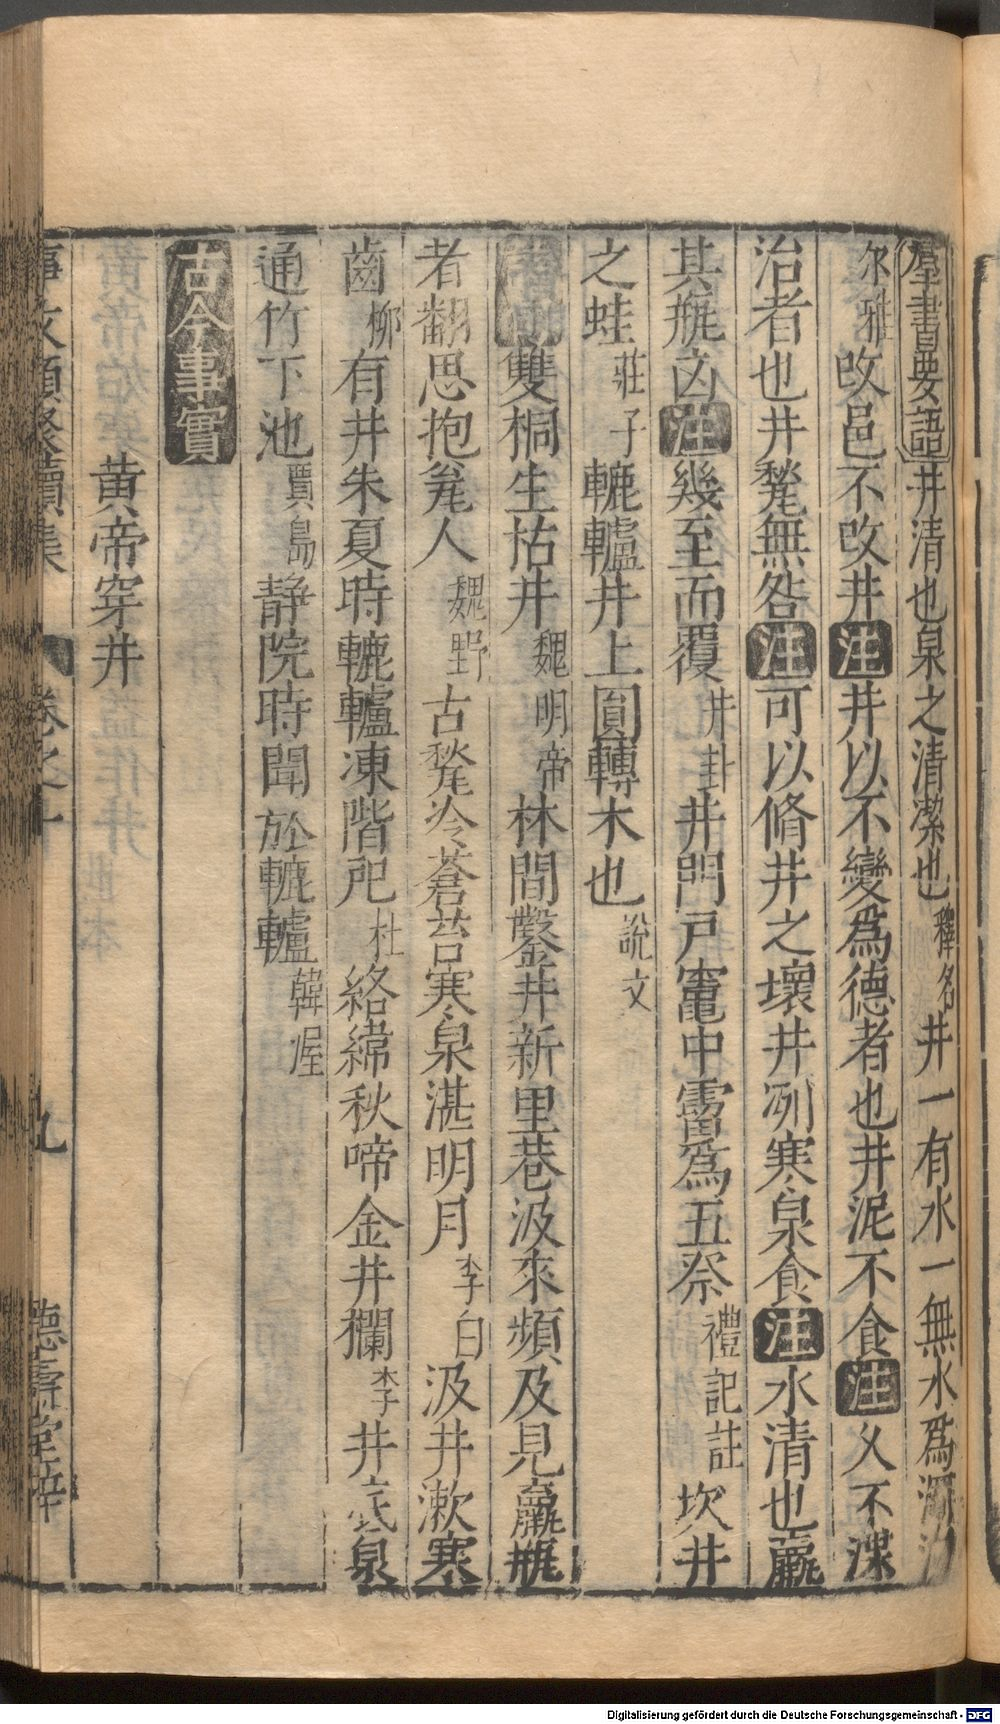 羣書要語井清也泉之清潔也釋名井一有水一無水爲瀱汋
尔雅改邑不改井注井以不變爲德者也井泥不食注久不渫
治者也井甃無咎注可以脩井之壞井冽寒泉食注水清也羸
其瓶凶注幾至而覆井卦井門戸竈中霤爲五祭禮記註坎井
之蛙莊子轆轤井上圓轉木也說文
雙桐生枯井魏明帝林間鑿井新里巷汲來頻及見羸瓶
者翻思抱瓮人魏野古甃冷蒼苔寒泉湛明月李白汲井漱寒
齒柳有井朱夏時轆轤凍階戺杜絡緯秋啼金井欄李井底泉
通竹下池賈島静院時聞於轆轤韓渥
古今事實
黄帝穿井
事文類聚續集 卷之十 九 德壽堂梓
Digitalisierung gefördert durch die Deutsche Forschungsgemeinschaft - DFG